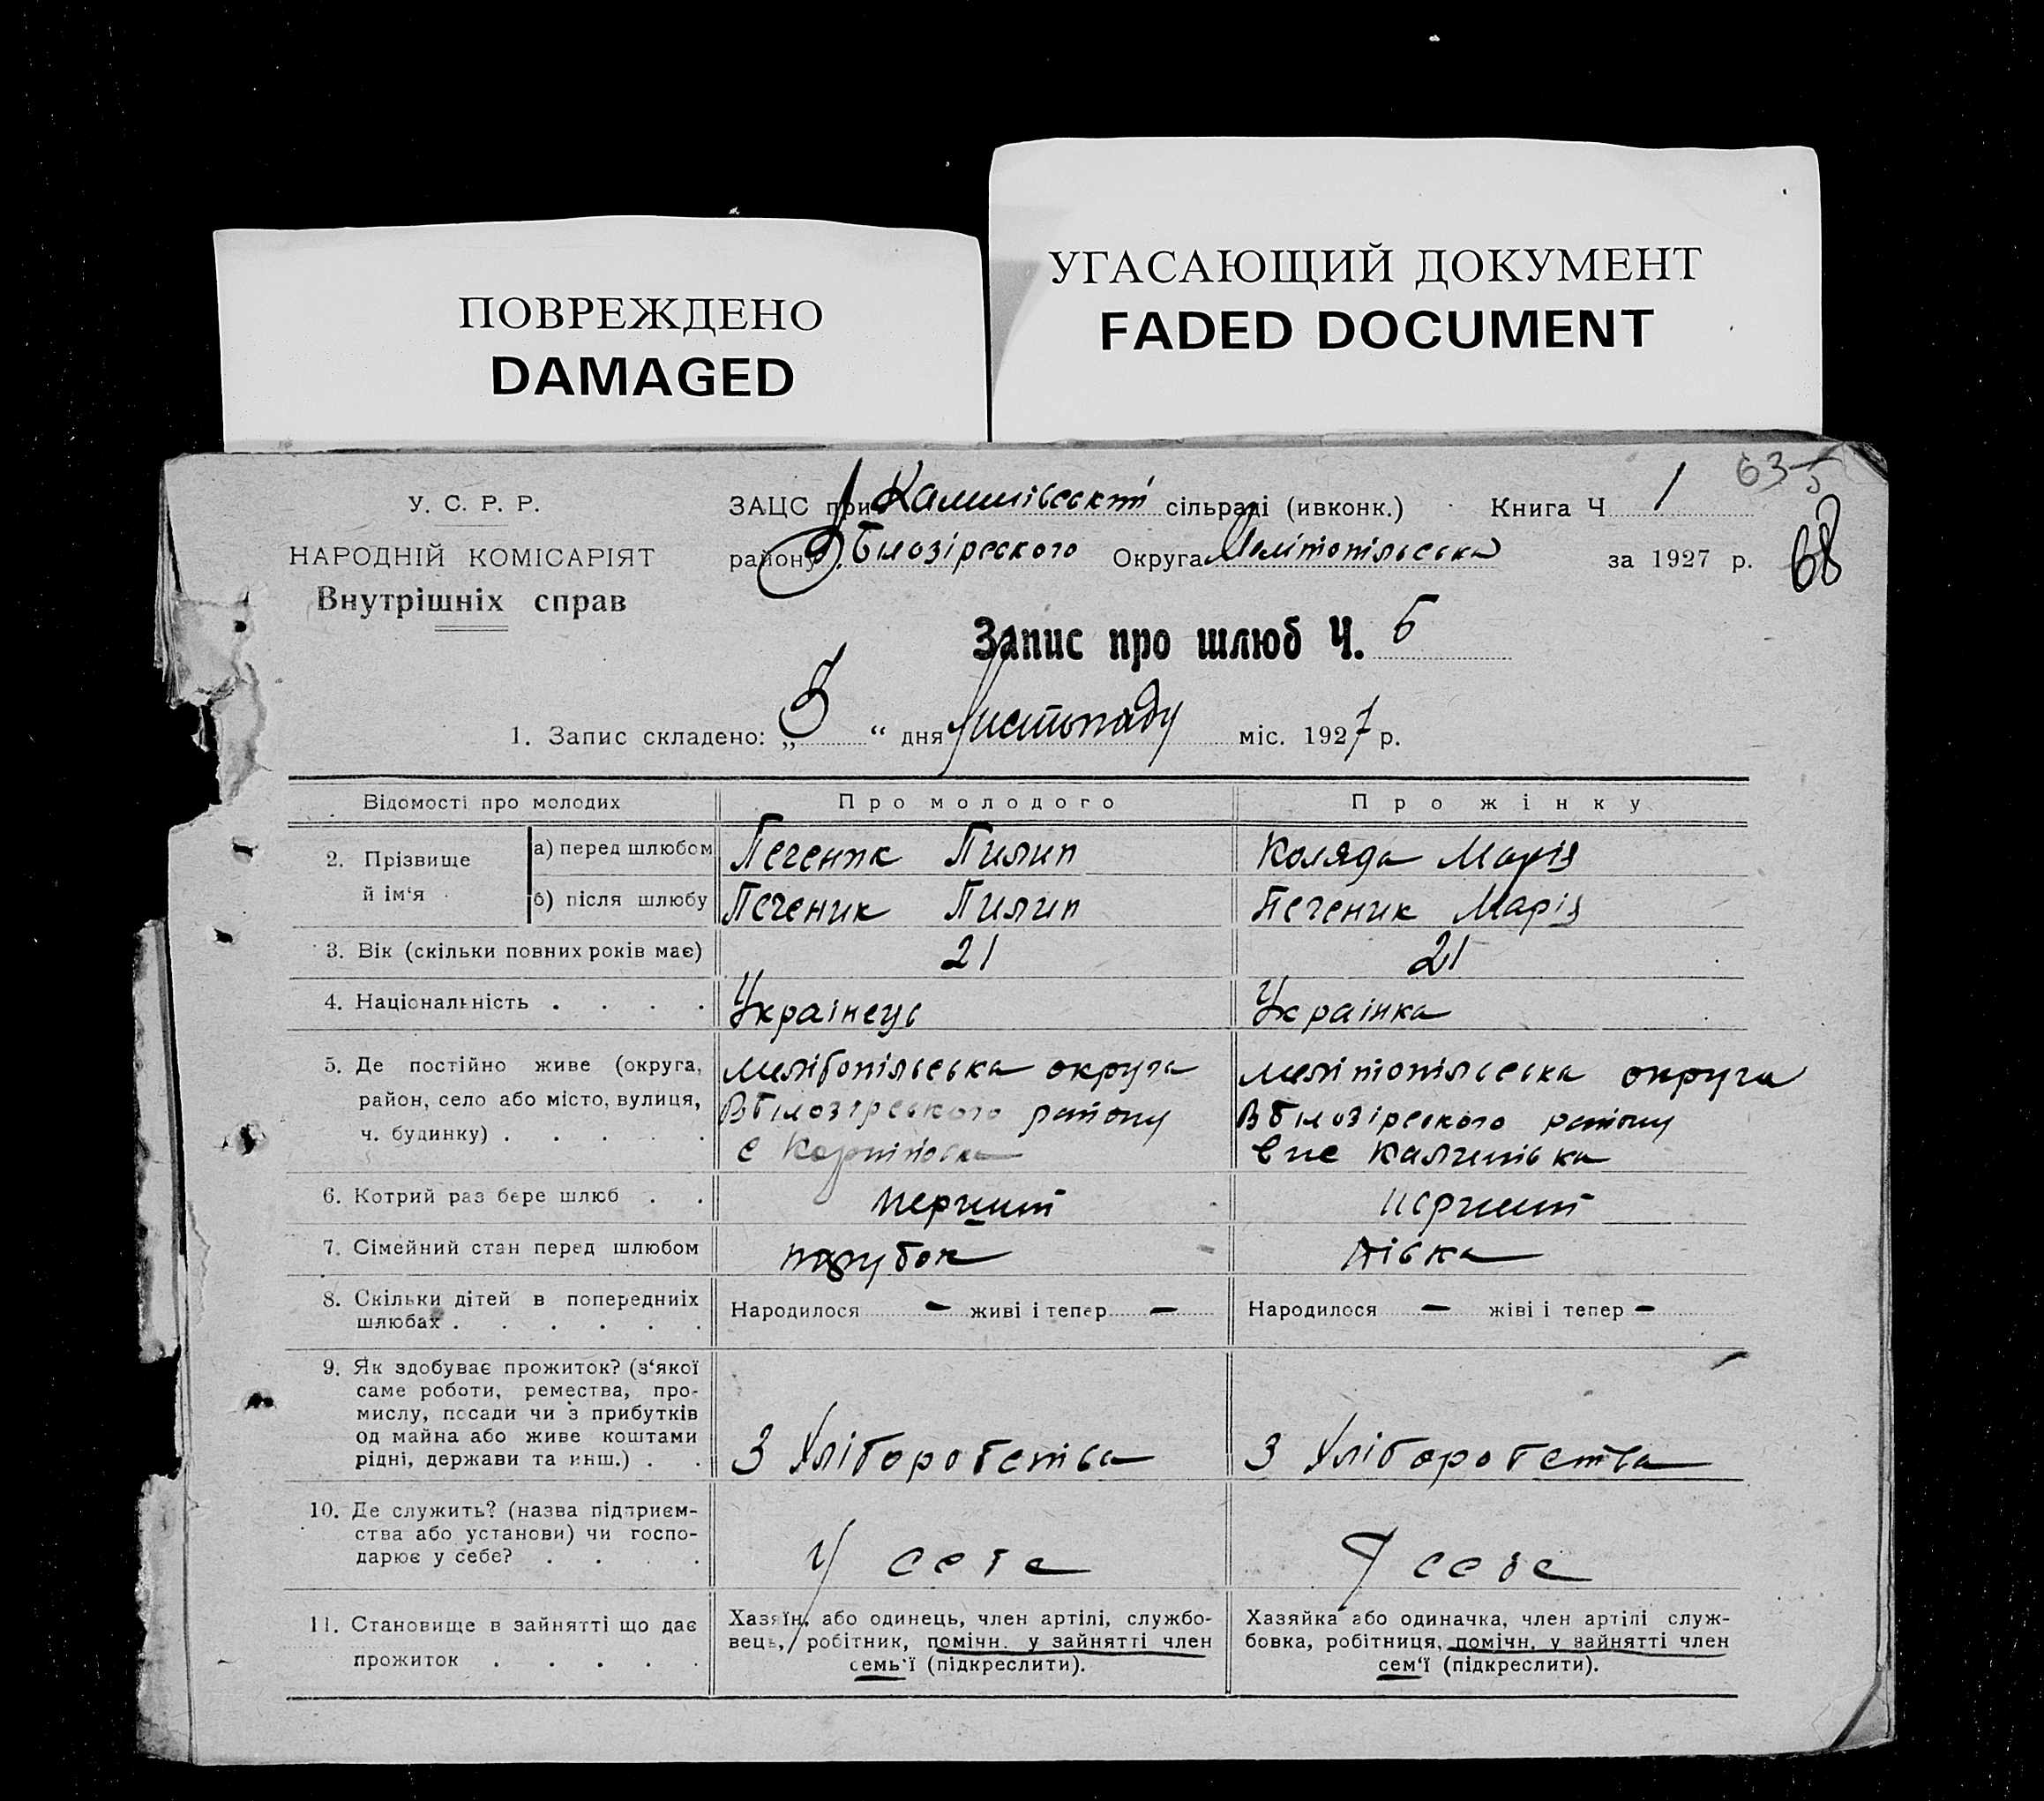 ПОВРЕЖДЕНО
DAMAGED
УГАСАЮЩИЙ ДОКУМЕНТ
FADED DOCUMENT
635
68
У. С. Р. Р.
НАРОДНІЙ КОМІСАРІЯТ
Внутрішніх справ
ЗАЦС при сільраді (ивконк.) Книга Ч 1
району В.Білозірского Округа Мелітопільська за 1927 р.
Запис про шлюб Ч. 6
1. Запис складено: „ “ дня Листопаду міс. 1927 р.
Відомості про молодих Про молодого Про жінку
2. Прізвище й ім‘я
а) перед шлюбом Печеник Пилип Коляда Марія
б) після шлюбу Печеник Пилип Печеник Марія
3. Вік (скільки повних років має) 21 21
4. Національність . . . . Украінець Украінка
5. Де постійно живе (округа, Мелітопільська округа Мелітопільська округа
район, село або місто, вулиця, ВБілозірського району ВБілозірського району
ч. будинку) . . . . . с Калинівка
6. Котрий раз бере шлюб . . перший перший
7. Сімейний стан перед шлюбом парубок дівка
8. Скільки дітей в попередниіх Народилося — живі і тепер — Народилося — жіві і тепер —
шлюбах . . . . . .
9. Як здобуває прожиток? (з‘якої
саме роботи, ремества, про-
мислу, посади чи з прибутків
од майна або живе коштами
рідні, держави та инш.) . . З Хліборобства З Хліборобства
10. Де служить? (назва підприєм-
ства або установи) чи госпо-
дарює у себе? . . . . У себе У себе
11. Становище в зайнятті що дає
прожиток . . . . .
Хазяїн, або одинець, член артілі, службо-
вець, робітник, помічн. у зайнятті член
семь‘ї (підкреслити).
Хазяйка або одиначка, член артілі служ-
бовка, робітниця, помічн. у зайнятті член
сем‘ї (підкреслити).